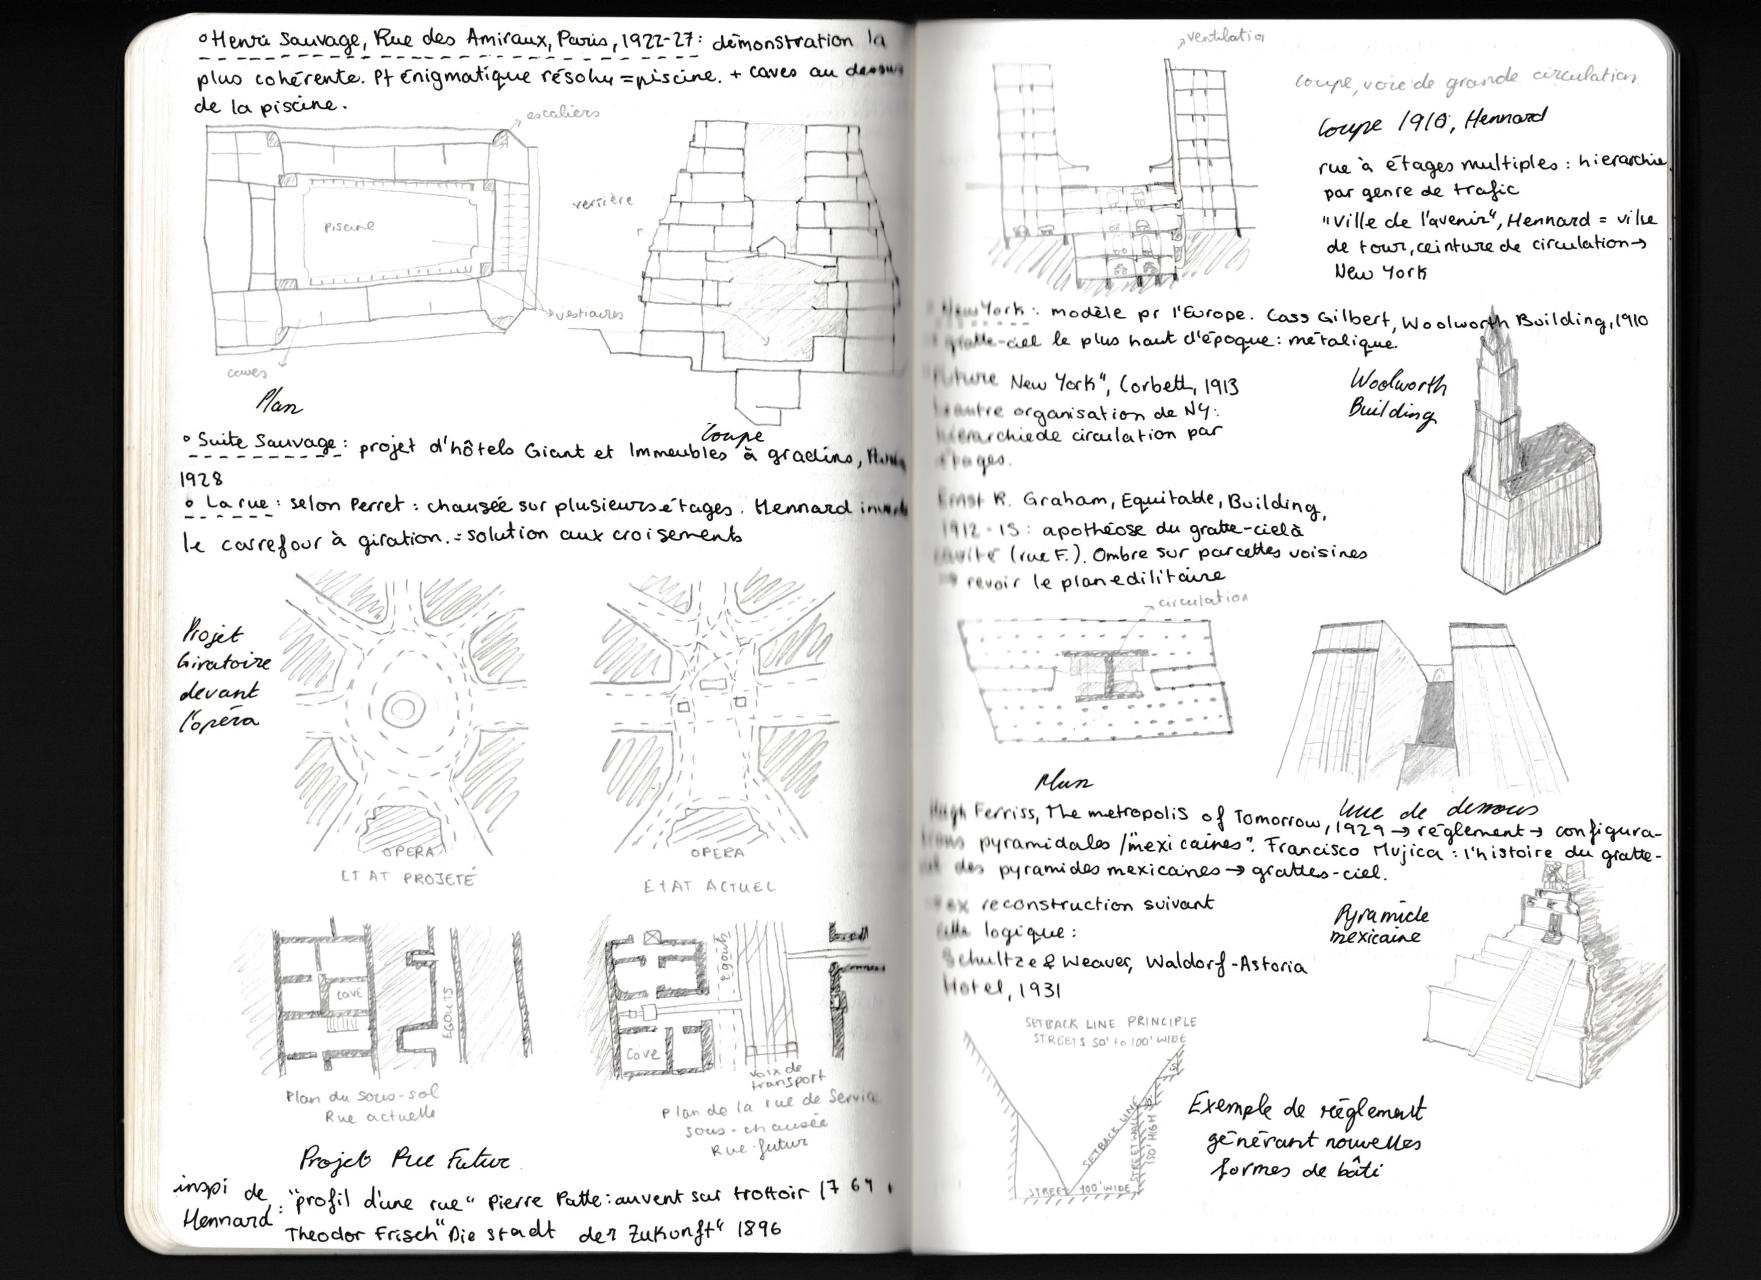 °Henri Sauvage, Rue des Amiraux, Paris, 1922-27: démonstration la
plus cohérente. Pt énigmatique résolu = piscine. + caves au dessus
de la piscine.
escaliers
piscine
verrière
vestiaires
caves
Plan
Coupe
° Suite Sauvage : projet d'hôtels Giant et Immeubles à gradins,
1928
° La rue : selon Perret : chaussée sur plusieurs étages. Hennard invente
le carrefour à giration. = solution aux croisements
Projet
Giratoire
devant
l'opéra
OPERA
ETAT PROJETÉ
OPERA
ETAT ACTUEL
CAVE
EGOUTS
Plan du sous-sol
Rue actuelle
EGOUT
CAVE
voix de
transport
Plan de la rue de Service
sous-chausée
Rue futur
Projet Rue Futur
inspi de
Hennard :
"profil d'une rue" Pierre Patte : auvent sur trottoir 1764,
Theodor Frisch "Die stadt der Zukunft" 1896
ventilation
coupe, voie de grande circulation
Coupe 1910, Hennard
rue à étages multiples : hierarchie
par genre de trafic
"Ville de l'avenir", Hennard = ville
de tour, ceinture de circulation →
New York
New York : modèle pr l'Europe. Cass Gilbert, Woolworth Building, 1910
gratte-ciel le plus haut d'époque : métalique.
Woolworth
Building
"Future New York", Corbett, 1913
autre organisation de NY :
hierarchie de circulation par
étages.
Ernst R. Graham, Equitable, Building,
1912-15 : apothéose du gratte-ciel à
cavité (rue F.). Ombre sur parcelles voisines
→ revoir le plan edilitaire
circulation
Plan
Vue de dessous
Hugh Ferriss, The metropolis of Tomorrow, 1929 → réglement → configura-
tions pyramidales / "mexicaines". Francisco Mujica : l'histoire du gratte-
des pyramides mexicaines → grattes-ciel.
ex reconstruction suivant
cette logique :
Schultze & Weaver, Waldorf-Astoria
Hotel, 1931
Pyramide
mexicaine
SETBACK LINE PRINCIPLE
STREETS 50' to 100' WIDE
SETBACK LINE
STREET WALL
150' HIGH
STREET 100' WIDE
Exemple de réglement
générant nouvelles
formes de bâti